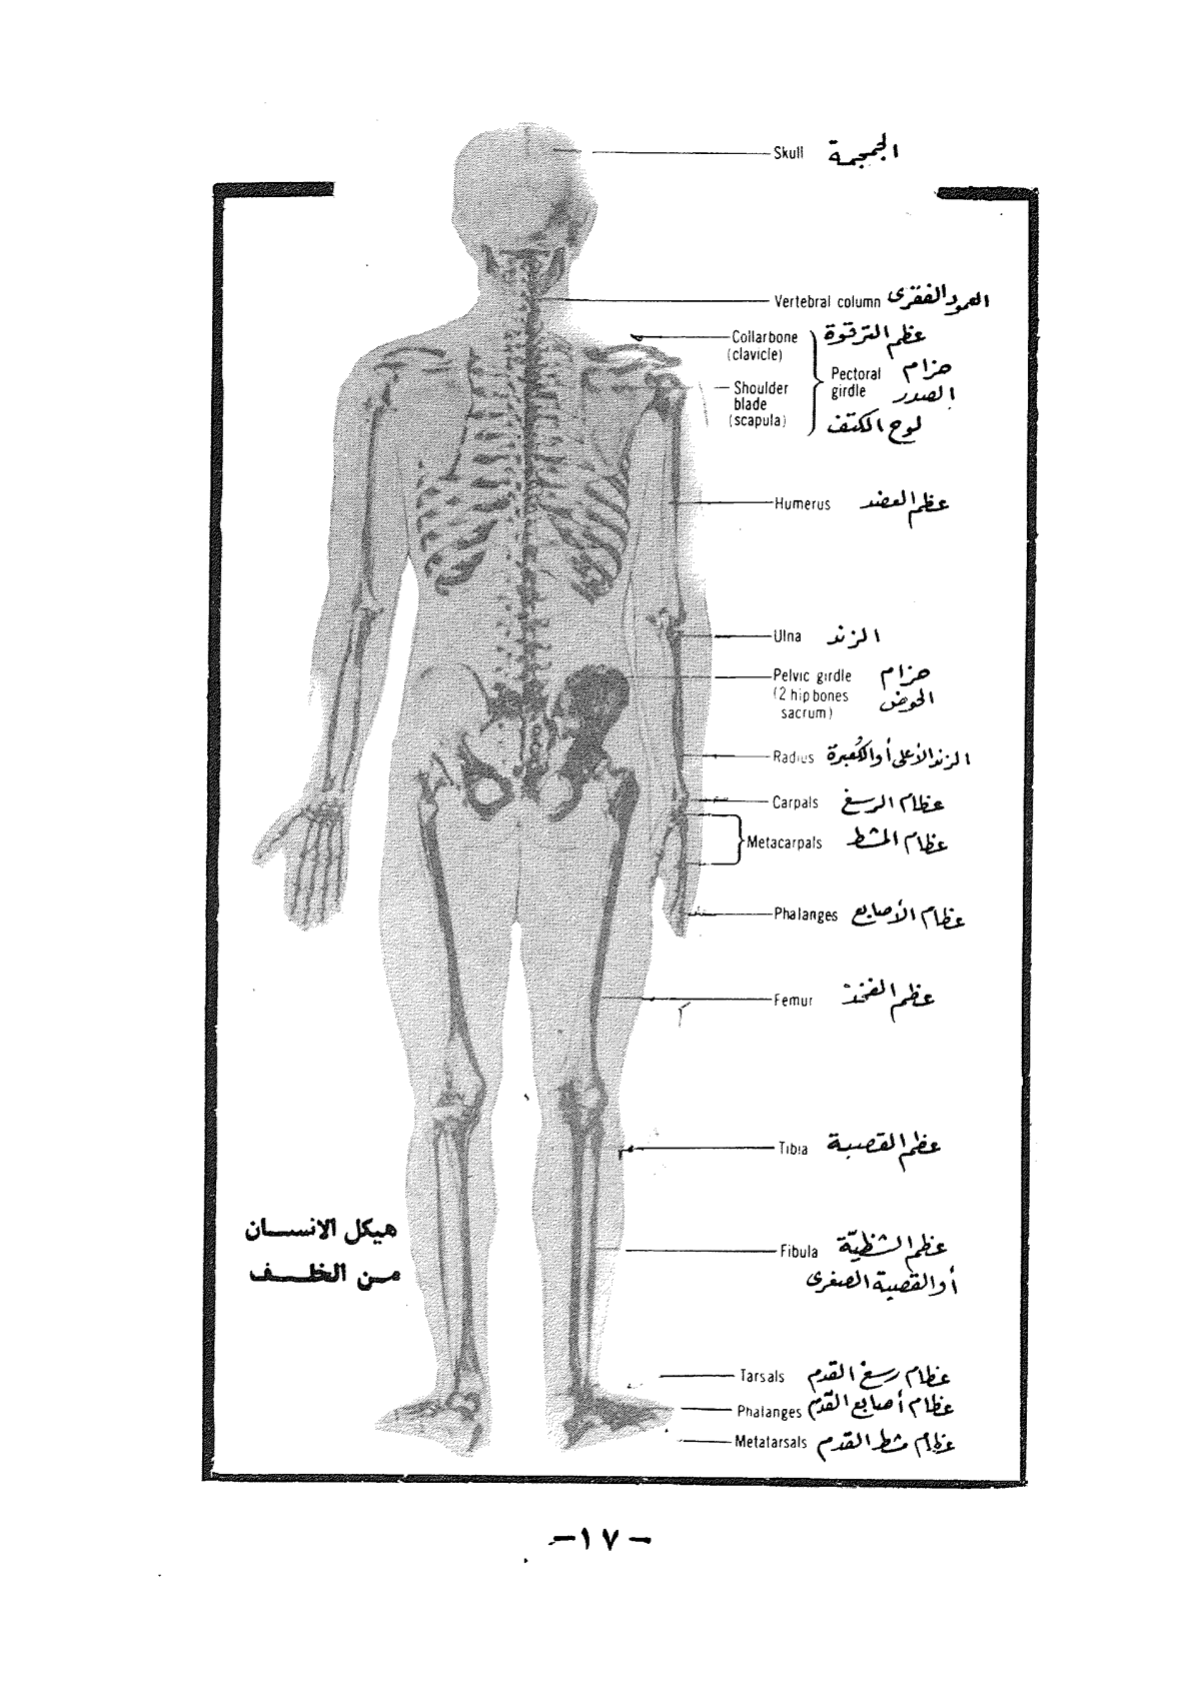 Skull الجمجمة
Vertebral column العمود الفقرى
Collarbone عظم الترقوة
(clavicle)
Pectoral حزام
girdle الصدر
Shoulder
blade
(scapula) لوح الكتف
Humerus عظم العضد
Ulna الزند
Pelvic girdle حزام
(2 hip bones الحوض
sacrum)
Radius الزند الأعلى أو الكُعبرة
Carpals عظام الرسغ
Metacarpals عظام المشط
Phalanges عظام الأصابع
Femur عظم الفخذ
Tibia عظم القصبة
هيكل الانسان
من الخلف
Fibula عظم الشظيّة
أو القصبة الصغرى
Tarsals عظام رسغ القدم
Phalanges عظام أصابع القدم
Metatarsals عظام مشط القدم
-١٧-